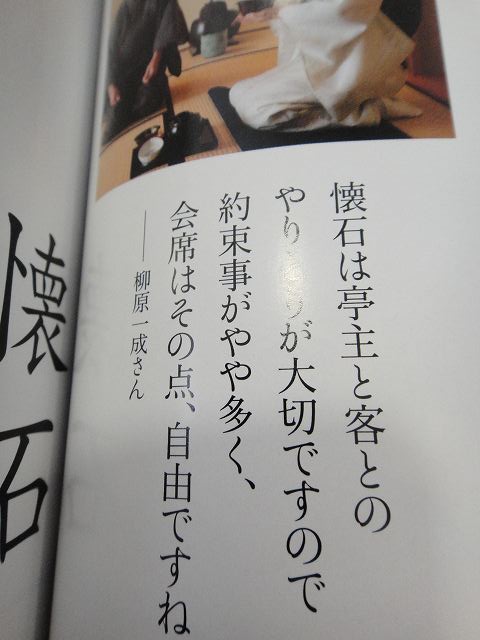 懐石は亭主と客との
やりとりが大切ですので
約束事がやや多く、
会席はその点、自由ですね
── 柳原一成さん
懐石